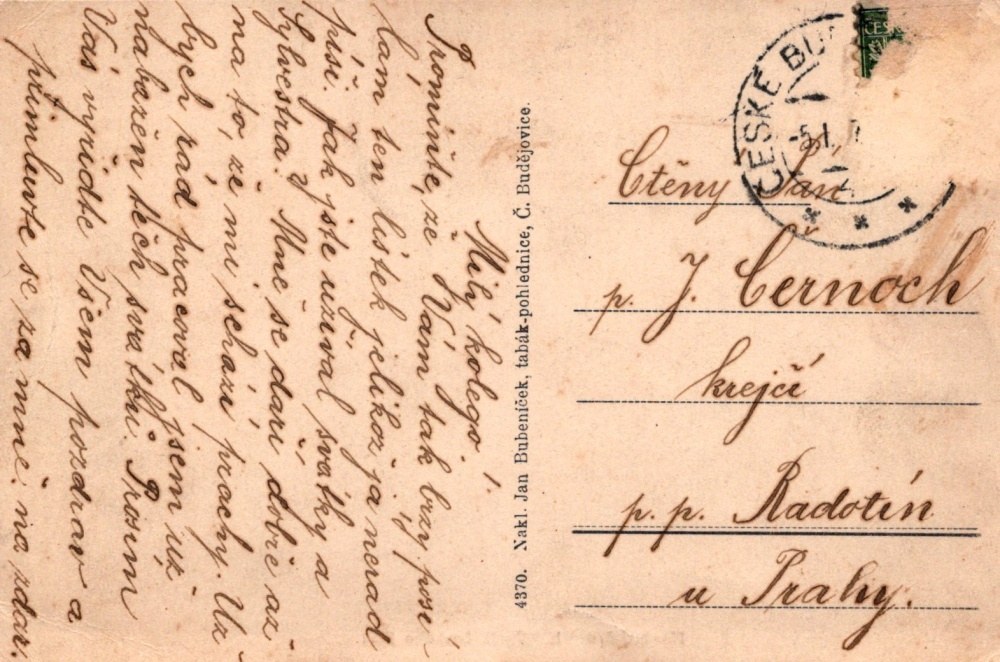 Milý kolego!
Promiňte, že Vám tak brzy posí
lám ten lístek jelikož ja nerad
píši. Jak jste užíval svátky a
Sylvestra? Mně se daří dobře až
na to, že mi schází prachy. Už
bych rád pracoval jsem už
nabažen těch svátků. Prosím
Vás vyřidte Všem pozdrav a
přimluvte se za mně. na zdar.
4370. Nakl. Jan Bubeníček, tabák-pohlednice, Č. Budějovice.
ČESKÉ BU
-5.I.
Ctěny Pan
p. J. Černoch
krejčí
p. p. Radotín
u Prahy.